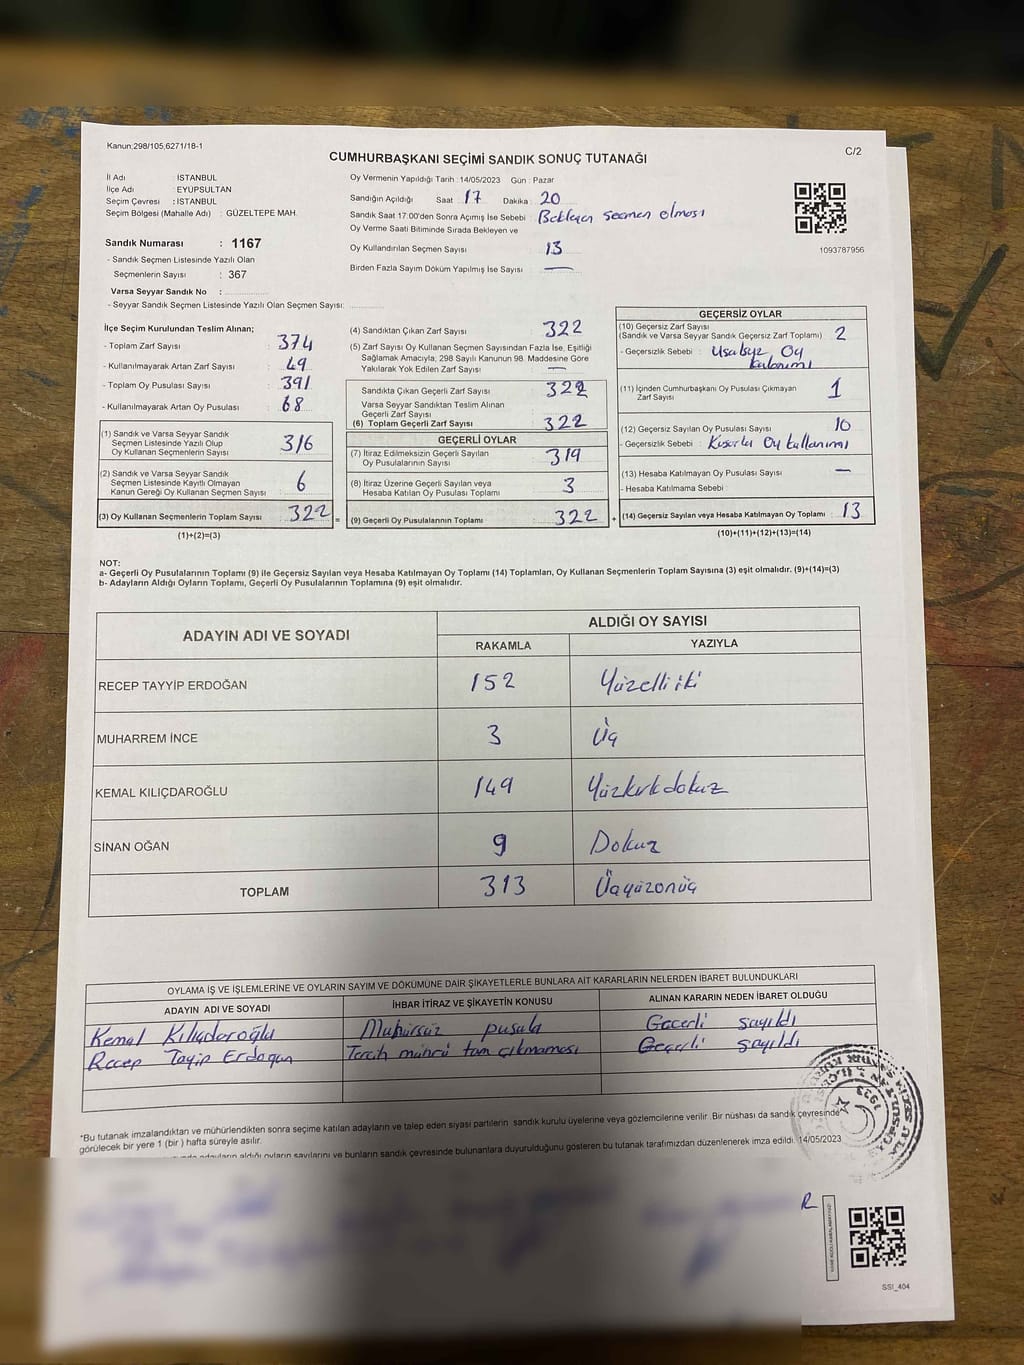 Kanun;298/105,6271/18-1
C/2
CUMHURBAŞKANI SEÇİMİ SANDIK SONUÇ TUTANAĞI
İl Adı : İSTANBUL
İlçe Adı : EYÜPSULTAN
Seçim Çevresi : İSTANBUL
Seçim Bölgesi (Mahalle Adı) : GÜZELTEPE MAH.
Oy Vermenin Yapıldığı Tarih : 14/05/2023 Gün : Pazar
Sandığın Açıldığı Saat 17 Dakika : 20
Sandık Saat 17:00'den Sonra Açımış İse Sebebi : Bekleyen seçmen olması
Oy Verme Saati Bitiminde Sırada Bekleyen ve
Oy Kullandırılan Seçmen Sayısı 13
Birden Fazla Sayım Döküm Yapılmış İse Sayısı —
1093787956
Sandık Numarası : 1167
- Sandık Seçmen Listesinde Yazılı Olan
Seçmenlerin Sayısı : 367
Varsa Seyyar Sandık No :
- Seyyar Sandık Seçmen Listesinde Yazılı Olan Seçmen Sayısı:
İlçe Seçim Kurulundan Teslim Alınan;
- Toplam Zarf Sayısı : 374
- Kullanılmayarak Artan Zarf Sayısı : 49
- Toplam Oy Pusulası Sayısı : 391
- Kullanılmayarak Artan Oy Pusulası : 68
(1) Sandık ve Varsa Seyyar Sandık
Seçmen Listesinde Yazılı Olup
Oy Kullanan Seçmenlerin Sayısı 316
(2) Sandık ve Varsa Seyyar Sandık
Seçmen Listesinde Kayıtlı Olmayan
Kanun Gereği Oy Kullanan Seçmen Sayısı 6
(3) Oy Kullanan Seçmenlerin Toplam Sayısı 322 =
(1)+(2)=(3)
(4) Sandıktan Çıkan Zarf Sayısı 322
(5) Zarf Sayısı Oy Kullanan Seçmen Sayısından Fazla İse, Eşitliği
Sağlamak Amacıyla, 298 Sayılı Kanunun 98. Maddesine Göre
Yakılarak Yok Edilen Zarf Sayısı —
Sandıkta Çıkan Geçerli Zarf Sayısı 322
Varsa Seyyar Sandıktan Teslim Alınan
Geçerli Zarf Sayısı
(6) Toplam Geçerli Zarf Sayısı 322
GEÇERLİ OYLAR
(7) İtiraz Edilmeksizin Geçerli Sayılan
Oy Pusulalarının Sayısı 319
(8) İtiraz Üzerine Geçerli Sayılan veya
Hesaba Katılan Oy Pusulası Toplamı 3
(9) Geçerli Oy Pusulalarının Toplamı 322 +
GEÇERSİZ OYLAR
(10) Geçersiz Zarf Sayısı
(Sandık ve Varsa Seyyar Sandık Geçersiz Zarf Toplamı) 2
- Geçersizlik Sebebi : Usulsyz Oy
kulanımı
(11) İçinden Cumhurbaşkanı Oy Pusulası Çıkmayan
Zarf Sayısı 1
(12) Geçersiz Sayılan Oy Pusulası Sayısı 10
- Geçersizlik Sebebi : Kusurlu Oy kullanımı
(13) Hesaba Katılmayan Oy Pusulası Sayısı —
- Hesaba Katılmama Sebebi
(14) Geçersiz Sayılan veya Hesaba Katılmayan Oy Toplamı 13
(10)+(11)+(12)+(13)=(14)
NOT:
a- Geçerli Oy Pusulalarının Toplamı (9) ile Geçersiz Sayılan veya Hesaba Katılmayan Oy Toplamı (14) Toplamları, Oy Kullanan Seçmenlerin Toplam Sayısına (3) eşit olmalıdır. (9)+(14)=(3)
b- Adayların Aldığı Oyların Toplamı, Geçerli Oy Pusulalarının Toplamına (9) eşit olmalıdır.
ADAYIN ADI VE SOYADI
ALDIĞI OY SAYISI
RAKAMLA YAZIYLA
RECEP TAYYİP ERDOĞAN 152 Yüzelliiki
MUHARREM İNCE 3 Üç
KEMAL KILIÇDAROĞLU 149 Yüzkırkdokuz
SİNAN OĞAN 9 Dokuz
TOPLAM 313 Üçyüzonüç
OYLAMA İŞ VE İŞLEMLERİNE VE OYLARIN SAYIM VE DÖKÜMÜNE DAİR ŞİKAYETLERLE BUNLARA AİT KARARLARIN NELERDEN İBARET BULUNDUKLARI
ADAYIN ADI VE SOYADI İHBAR İTİRAZ VE ŞİKAYETİN KONUSU ALINAN KARARIN NEDEN İBARET OLDUĞU
Kemal Kılıçdaroğlu Mühürsüz pusula Geçerli sayıldı
Recep Tayip Erdoğan Tercih mührü tam çıkmaması Geçerli sayıldı
*Bu tutanak imzalandıktan ve mühürlendikten sonra seçime katılan adayların ve talep eden siyasi partilerin sandık kurulu üyelerine veya gözlemcilerine verilir .Bir nüshası da sandık çevresinde
görülecek bir yere 1 (bir ) hafta süreyle asılır.
adayların aldığı oyların sayılarını ve bunların sandık çevresinde bulunanlara duyurulduğunu gösteren bu tutanak tarafımızdan düzenlenerek imza edildi. 14/05/2023
SSI_404